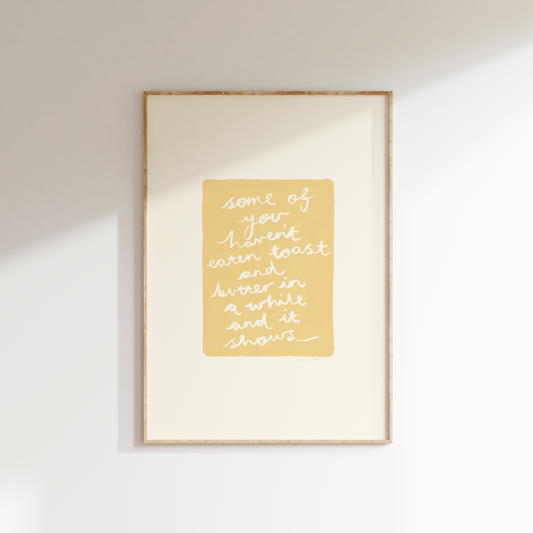 some of
you
haven't
eaten toast
and
butter in
a while
and it
shows